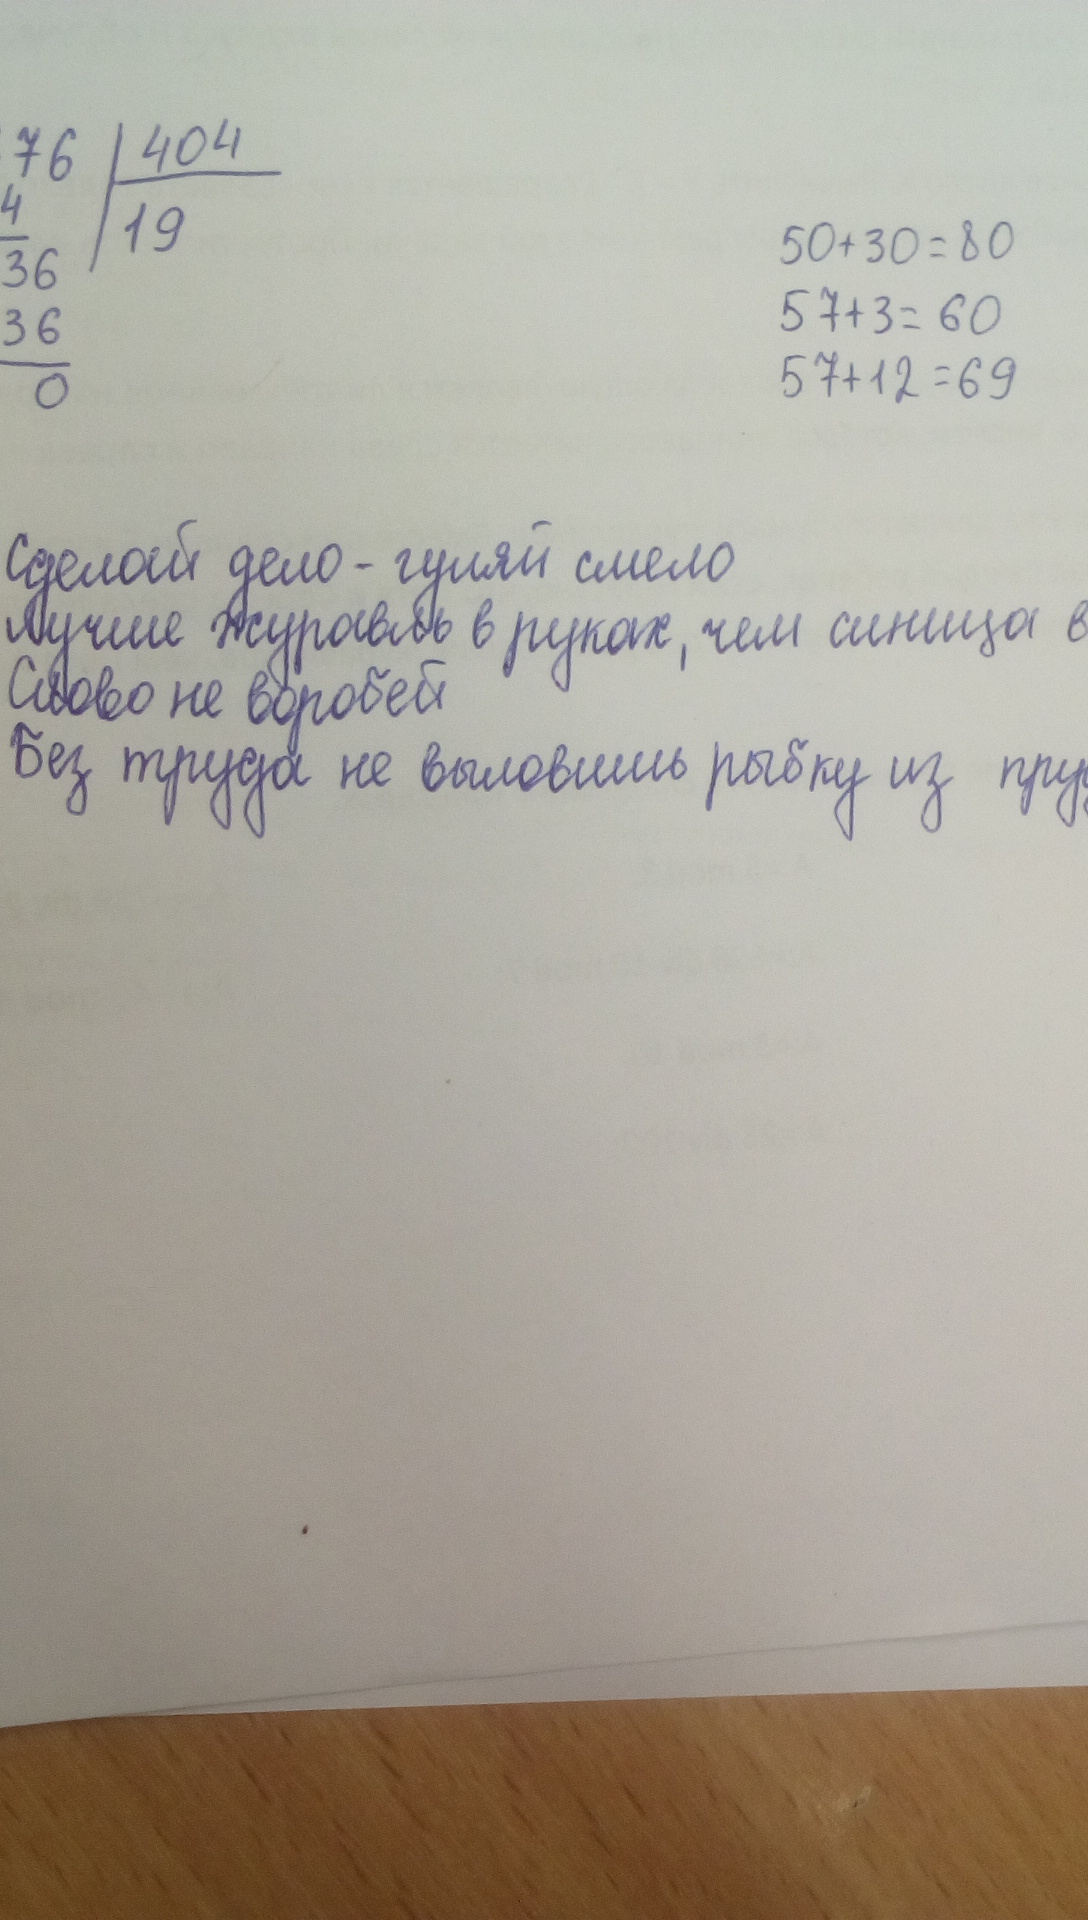 76 404
4 19
36
36
0
50+30=80
57+3=60
57+12=69
Сделай дело - гуляй смело
Лучше журавль в руках, чем синица в
Слово не воробей
Без труда не выловишь рыбку из